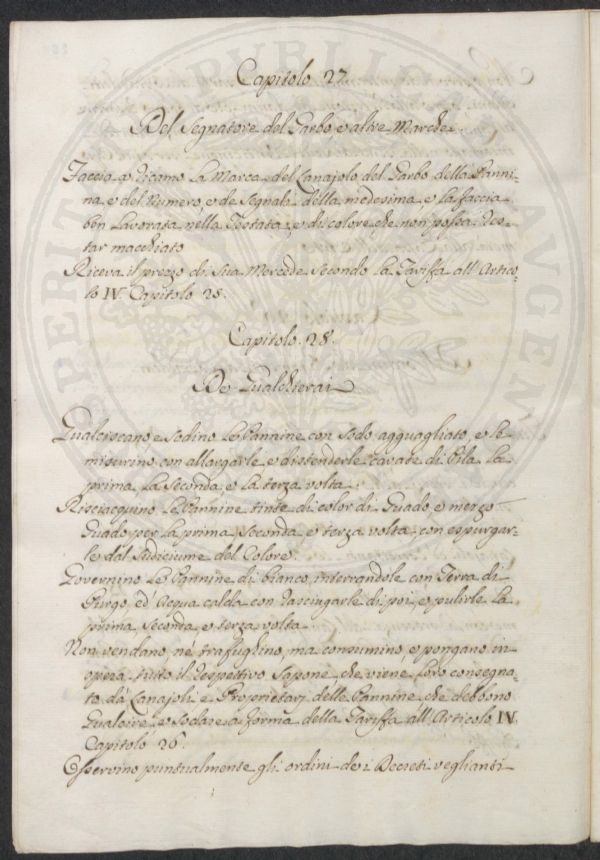 Capitolo 27.
Del Segnatore del Garbo, e altre Marche.
Faccia a Ricamo la Marca del Lanajolo del Garbo della Panni-
na, e del Numero, e de Segnali della medesima, e la faccia
ben lavorata nella Testata, e di colore che non possa Res-
tar macchiato
Riceva il prezzo di Sua Mercede Secondo la Tariffa all'Artico-
lo IV. Capitolo 28.
Capitolo 28.
De Gualchierai
Gualciscano e Sodino le Pannine con Sodo agguagliato, e le
misurino con allargarle, e distenderle cavate di Pila la
prima, la Seconda, e la terza volta.
Risciacquino le Pannine tinte di color di Guado, e mezzo
Guado per la prima, Seconda, e terza volta, con espurgar-
le dal Sudiciume del Colore.
Governino le Pannine di bianco, interrandole con Terra di
Purgo, ed Acqua calda con rasciugarle di poi, e pulirle la
prima, Seconda, e terza volta.
Non vendano, nè trafughino, ma consumino, e pongano in
opera tutto il respettivo Sapone, che viene loro consegna-
to da' Lanajoli e Proprietarj delle Pannine, che debbono
Gualcire, e Sodare a forma della Tariffa all'Articolo IV.
Capitolo 26.
Osservino puntualmente gli ordini de i Decreti veglianti
PERITI
REIPUBLICAE
AVGEN